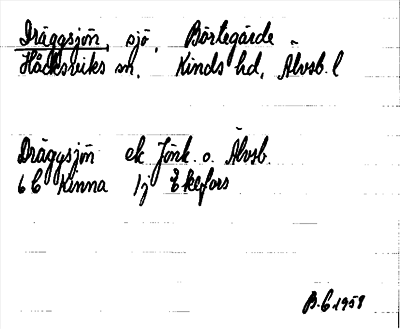 Dräggsjön, sjö, Börtegärde
Håcksviks sn. Kinds hd, Älvsb. l
Dräggsjön ek Jönk. o. Älvsb.
6 C Kinna 1j Ekefors
B.C 1958